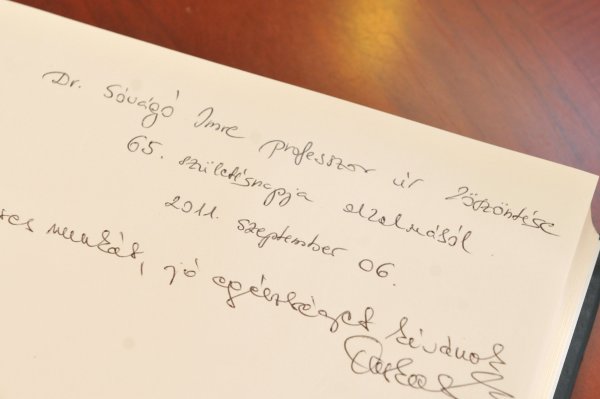 Dr. Sóvágó Imre professzor úr köszöntése
65. születésnapja alkalmából
2011. szeptember 06.
munkás, jó egészséget kívánok